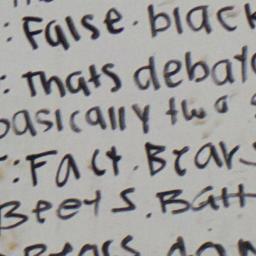 : False. black
: Thats debat
basically two
: Fact. Bears
Beets. Batt
Bears don